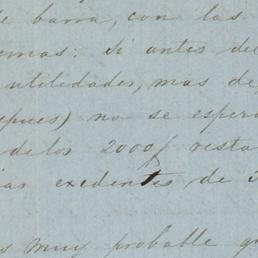 de barra, con las
emas: si antes de
utilidades, mas de
epues) no se esper
de los 2000 f resta
ias exedentes de
s muy probable q